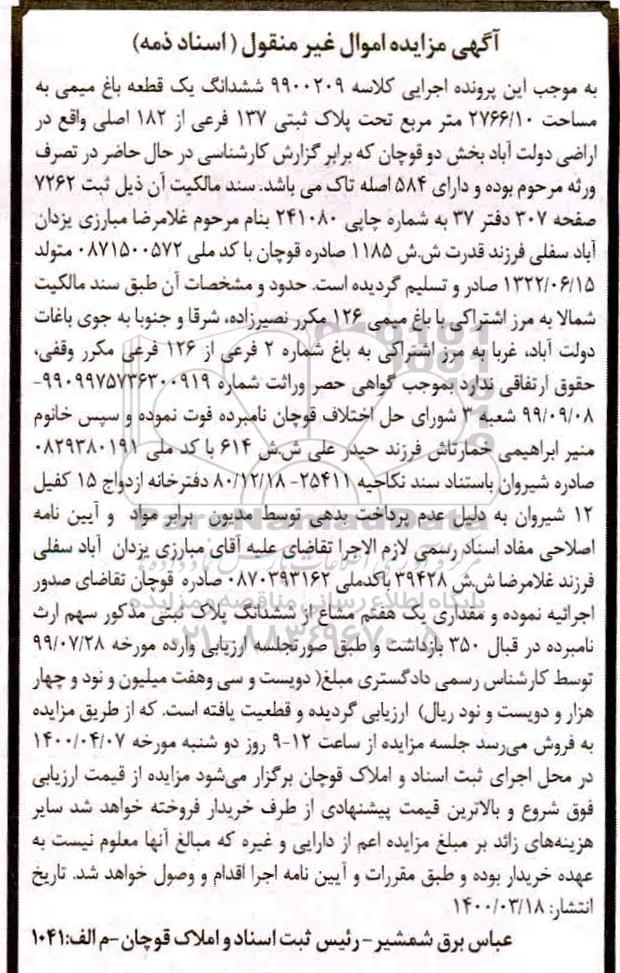 آگهی مزایده اموال غیر منقول (اسناد ذمه)
به موجب این پرونده اجرایی کلاسه ۹۹۰۰۲۰۹ ششدانگ یک قطعه باغ میمی به
مساحت ۲۷۶۶/۱۰ متر مربع تحت پلاک ثبتی ۱۳۷ فرعی از ۱۸۲ اصلی واقع در
اراضی دولت آباد بخش دو قوچان که برابر گزارش کارشناسی در حال حاضر در تصرف
ورثه مرحوم بوده و دارای ۵۸۴ اصله تاک می باشد. سند مالکیت آن ذیل ثبت ۷۲۶۲
صفحه ۳۰۷ دفتر ۳۷ به شماره چاپی ۲۴۱۰۸۰ بنام مرحوم غلامرضا مبارزی یزدان
آباد سفلی فرزند قدرت ش.ش ۱۱۸۵ صادره قوچان با کد ملی ۰۸۷۱۵۰۰۵۷۲ متولد
۱۳۲۲/۰۶/۱۵ صادر و تسلیم گردیده است. حدود و مشخصات آن طبق سند مالکیت
شمالا به مرز اشتراکی با باغ میمی ۱۲۶ مکرر نصیرزاده، شرقا و جنوبا به جوی باغات
دولت آباد، غربا به مرز اشتراکی به باغ شماره ۲ فرعی از ۱۲۶ فرعی مکرر وقفی،
حقوق ارتفاقی ندارد بموجب گواهی حصر وراثت شماره ۹۹۰۹۹۷۵۷۳۶۳۰۰۹۱۹-
۹۹/۰۹/۰۸ شعبه ۳ شورای حل اختلاف قوچان نامبرده فوت نموده و سپس خانوم
منیر ابراهیمی خمارتاش فرزند حیدر علی ش.ش ۶۱۴ با کد ملی ۰۸۲۹۳۸۰۱۹۱
صادره شیروان باستناد سند نکاحیه ۲۵۴۱۱- ۸۰/۱۲/۱۸ دفترخانه ازدواج ۱۵ کفیل
۱۲ شیروان به دلیل عدم پرداخت بدهی توسط مدیون برابر مواد و آیین نامه
اصلاحی مفاد اسناد رسمی لازم الاجرا تقاضای علیه آقای مبارزی یزدان آباد سفلی
فرزند غلامرضا ش.ش ۳۹۴۲۸ باکدملی ۰۸۷۰۳۹۳۱۶۲ صادره قوچان تقاضای صدور
اجرائیه نموده و مقداری یک هفتم مشاع از ششدانگ پلاک ثبتی مذکور سهم ارث
نامبرده در قبال ۳۵۰ بازداشت و طبق صورتجلسه ارزیابی وارده مورخه ۹۹/۰۷/۲۸
توسط کارشناس رسمی دادگستری مبلغ( دویست و سی وهفت میلیون و نود و چهار
هزار و دویست و نود ریال) ارزیابی گردیده و قطعیت یافته است. که از طریق مزایده
به فروش می‌رسد جلسه مزایده از ساعت ۱۲-۹ روز دو شنبه مورخه ۱۴۰۰/۰۴/۰۷
در محل اجرای ثبت اسناد و املاک قوچان برگزار می‌شود مزایده از قیمت ارزیابی
فوق شروع و بالاترین قیمت پیشنهادی از طرف خریدار فروخته خواهد شد سایر
هزینه‌های زائد بر مبلغ مزایده اعم از دارایی و غیره که مبالغ آنها معلوم نیست به
عهده خریدار بوده و طبق مقررات و آیین نامه اجرا اقدام و وصول خواهد شد. تاریخ
انتشار: ۱۴۰۰/۰۳/۱۸
عباس برق شمشیر- رئیس ثبت اسناد و املاک قوچان-م الف:۱۰۴۱